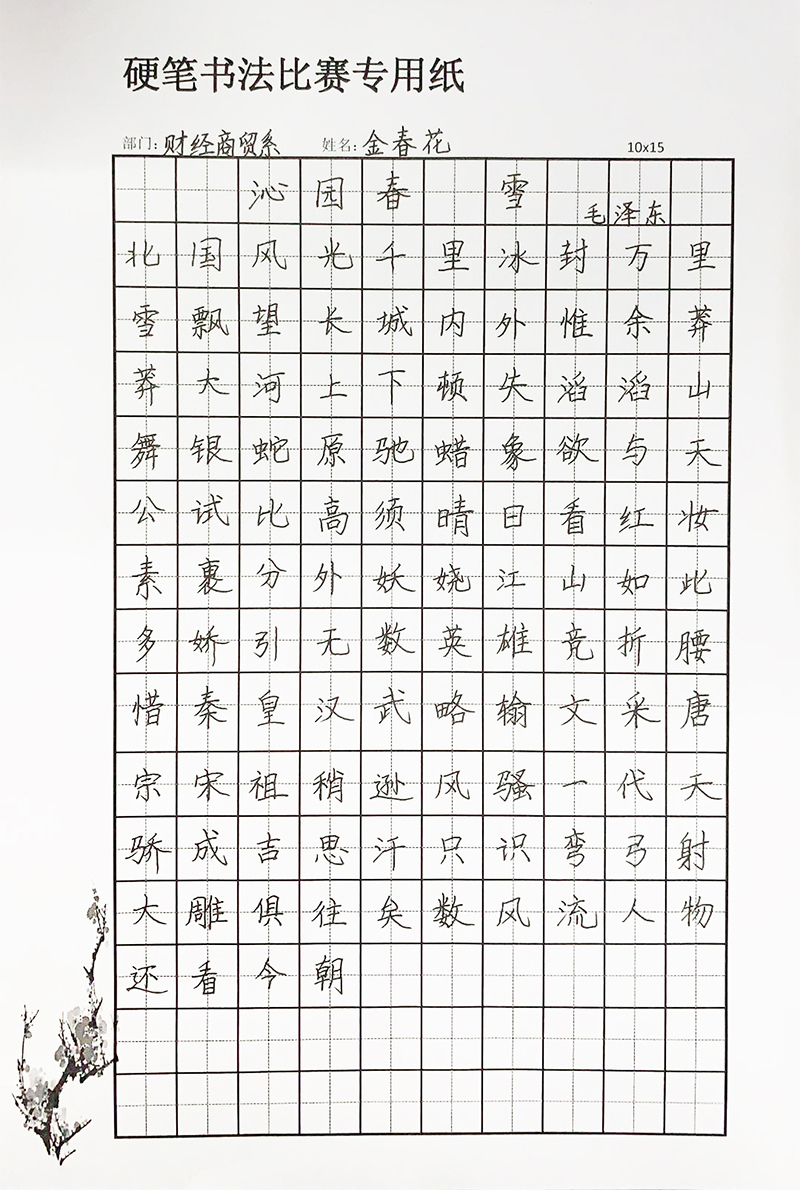 硬笔书法比赛专用纸
部门: 财经商贸系 姓名: 金春花 10x15
沁园春 雪 毛泽东
北国风光千里冰封万里
雪飘望长城内外惟余莽
莽大河上下顿失滔滔山
舞银蛇原驰蜡象欲与天
公试比高须晴日看红妆
素裹分外妖娆江山如此
多娇引无数英雄竞折腰
惜秦皇汉武略输文采唐
宗宋祖稍逊风骚一代天
骄成吉思汗只识弯弓射
大雕俱往矣数风流人物
还看今朝